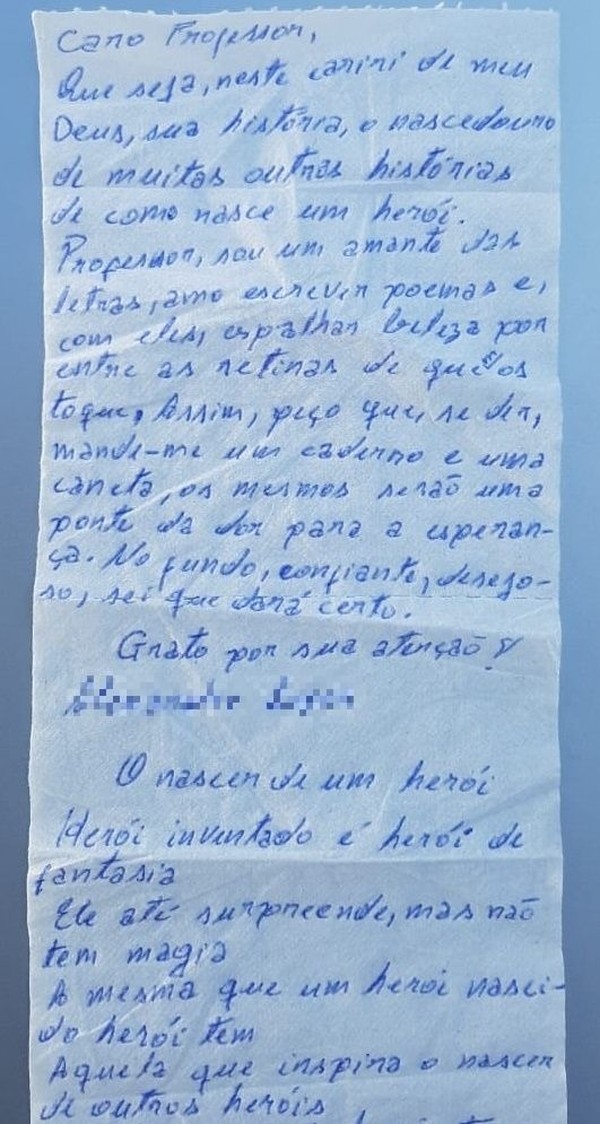 Caro Professor,
Que seja, neste cariri de meu
Deus, sua história, o nascedouro
de muitas outras histórias
de como nasce um herói.
Professor, sou um amante das
letras, amo escrever poemas e,
com eles, espalhar beleza por
entre as retinas de quem os
toque. Assim, peço que, se der,
mande-me um caderno e uma
caneta, os mesmos serão uma
ponte da dor para a esperan-
ça. No fundo, confiante, desejo-
so, sei que dará certo.
Grato por sua atenção!
O nascer de um herói
Herói inventado é herói de
fantasia
Ele até surpreende, mas não
tem magia
A mesma que um herói nasci-
do herói tem
Aquela que inspira o nascer
de outros heróis